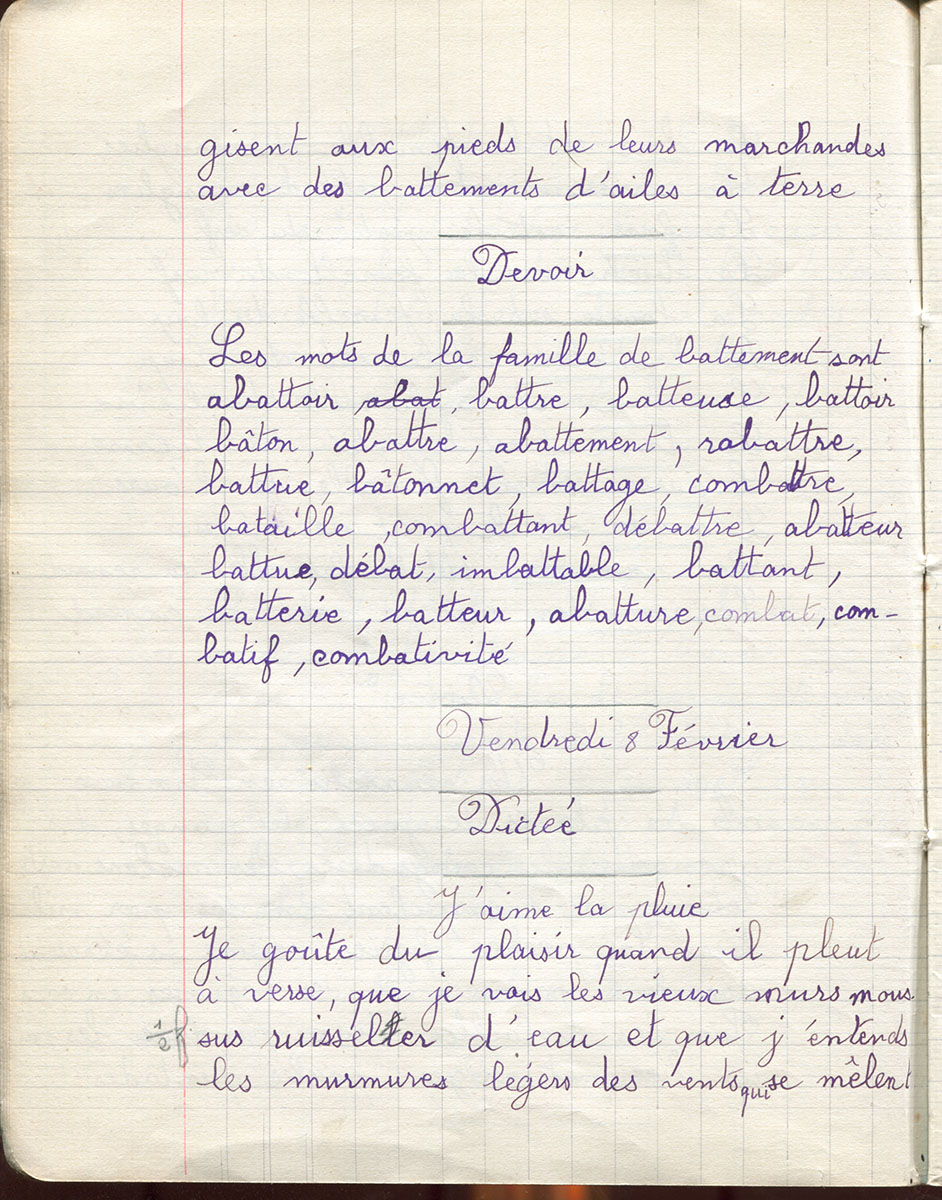 gisent aux pieds de leurs marchandes
avec des battements d'ailes à terre
Devoir
Les mots de la famille de battement sont
abattoir, abat, battre, batteuse, battoir
bâton, abattre, abattement, rabattre,
battue, bâtonnet, battage, combattre,
bataille, combattant, débattre, abatteur
battue, débat, imbattable, battant,
batterie, batteur, abatture, combat, com-
batif, combativité
Vendredi 8 Février
Dicteé
J'aime la pluie
Je goûte du plaisir quand il pleut
à verse, que je vois les vieux murs mous
1/2 f sus ruisseler d'eau et que j'éntends
les murmures légers des vents qui se mêlent